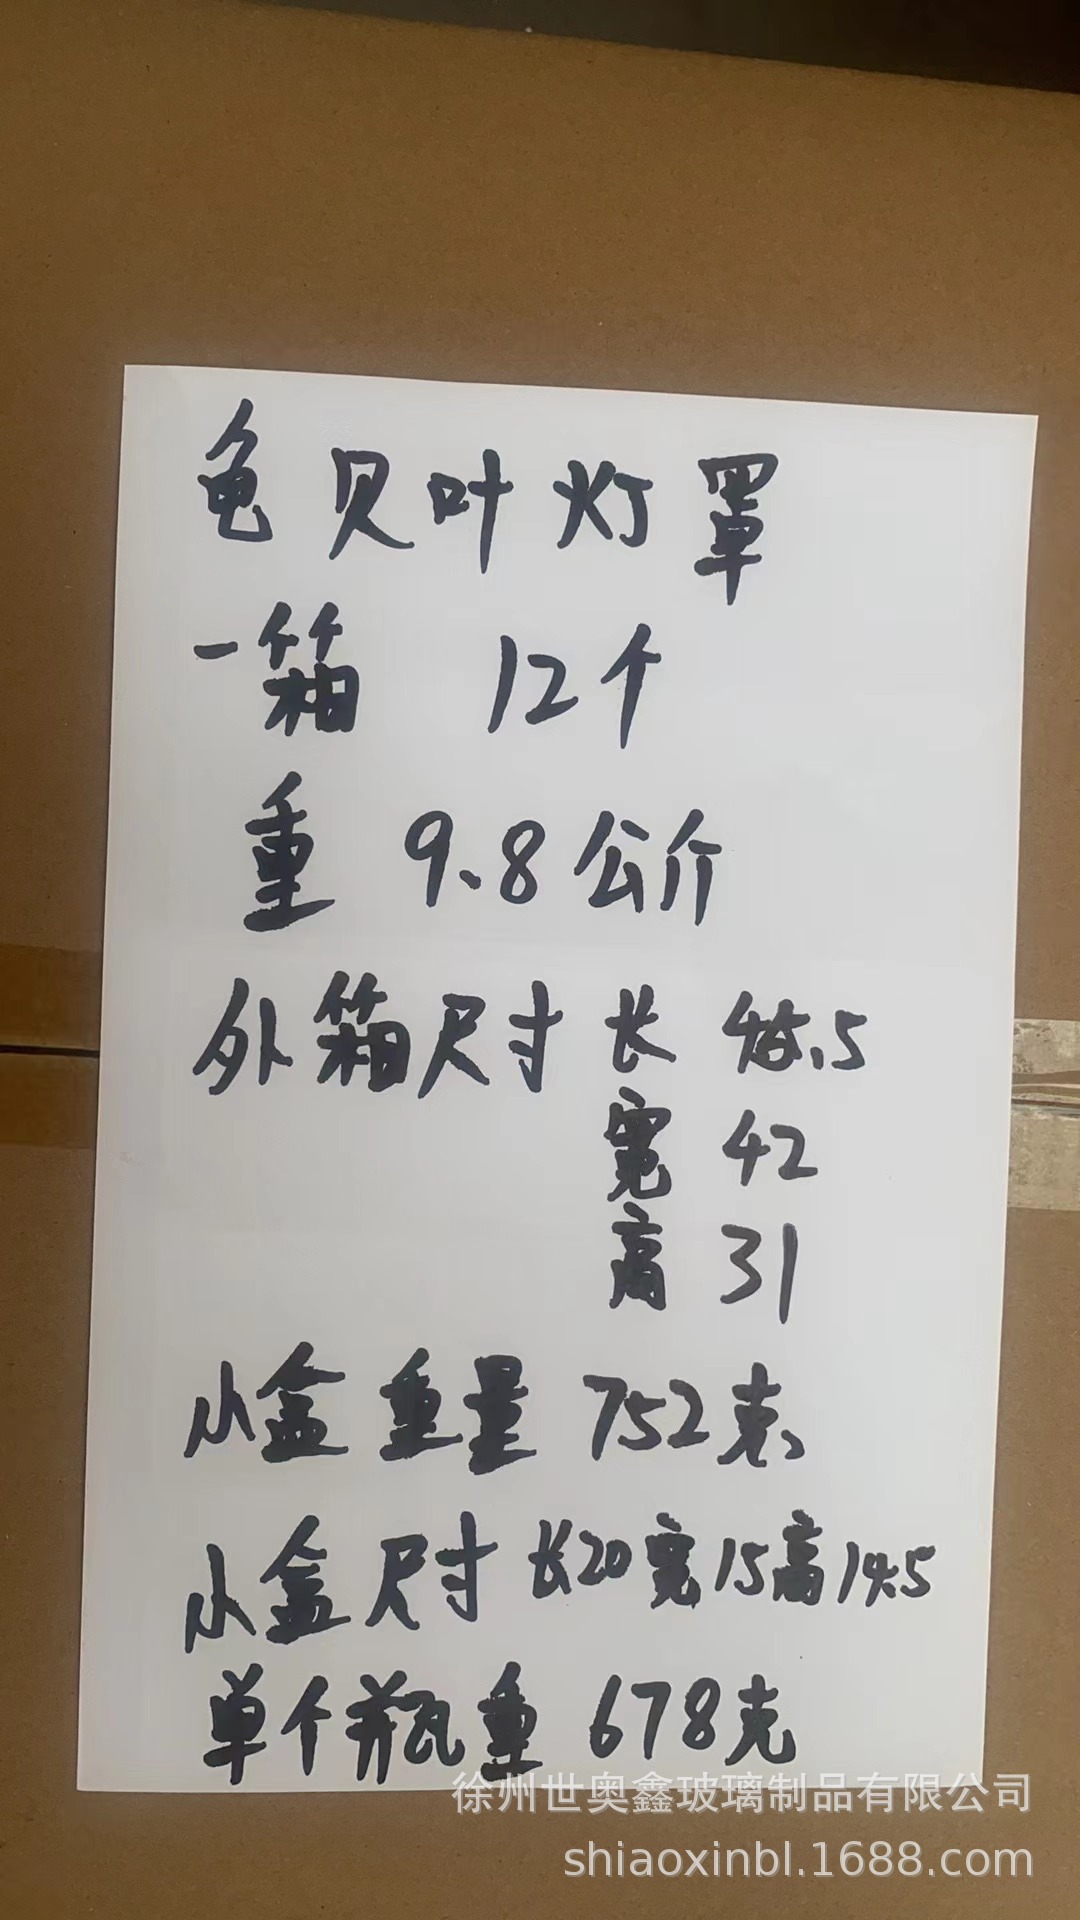 龟贝叶灯罩
一箱 12个
重 9.8公斤
外箱尺寸 长 45.5
宽 42
高 31
小盒重量 752克
小盒尺寸 长20宽15高14.5
单个瓶重 678克
徐州世奥鑫玻璃制品有限公司
shiaoxinbl.1688.com